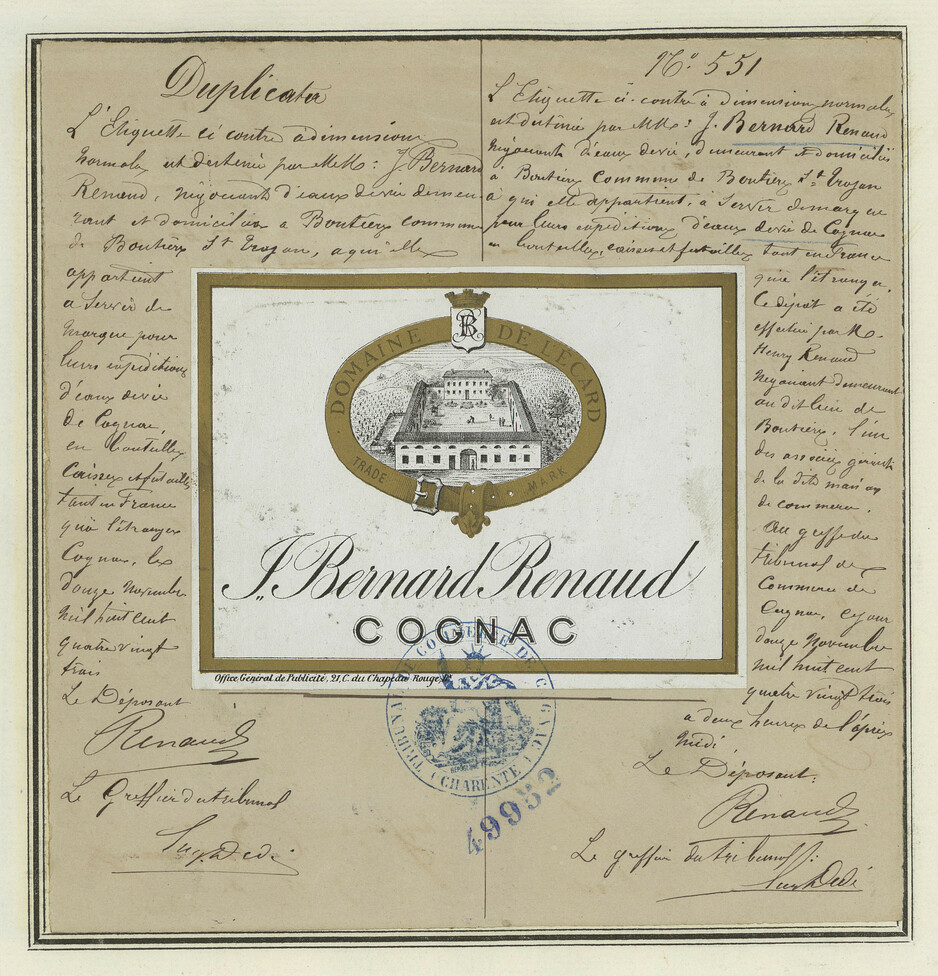 Duplicata
L'Etiquette ci contre a dimensions
normales est destinée par MM: J. Bernard
Renaud, négociant d'eaux de vie demeu-
rant et domiciliés a Boutiers commune
de Boutiers St Trojan, a qui elle
appartient
a servir de
marque pour
leurs expéditions
d'eaux de vie
de Cognac,
en bouteilles
caisses et futailles
tant en France
qu'à l'étranger
Cognac, les
douze novembre
mil huit cent
quatre vingt
trois
Le Déposant
Renaud
Le Greffier du tribunal
No. 551
L'Etiquette ci-contre à dimensions normales
est destinée par MM: J. Bernard Renaud
négociants d'eaux de vie, demeurant et domiciliés
à Boutiers commune de Boutiers St Trojan
à qui elle appartient, à servir de marque
pour leurs expéditions d'eaux de vie de Cognac
en bouteilles, caisses et futailles tant en France
qu'à l'étranger.
Ce dépôt a été
effectué par M.
Henry Renaud
négociant demeurant
au dit lieu de
Boutiers, l'un
des associés gérants
de la dite maison
de commerce.
Au greffe du
tribunal de
Commerce de
Cognac, ce jour
douze novembre
mil huit cent
quatre vingt trois
à deux heures de l'après
midi
Le Déposant:
Renaud
Le greffier du tribunal:
DOMAINE DE L'ÉCARD
TRADE MARK
J. Bernard Renaud
COGNAC
Office Général de Publicité, 21, C. du Chapeau Rouge,
TRIBUNAL DE COMMERCE DE COGNAC
(CHARENTE)
49952